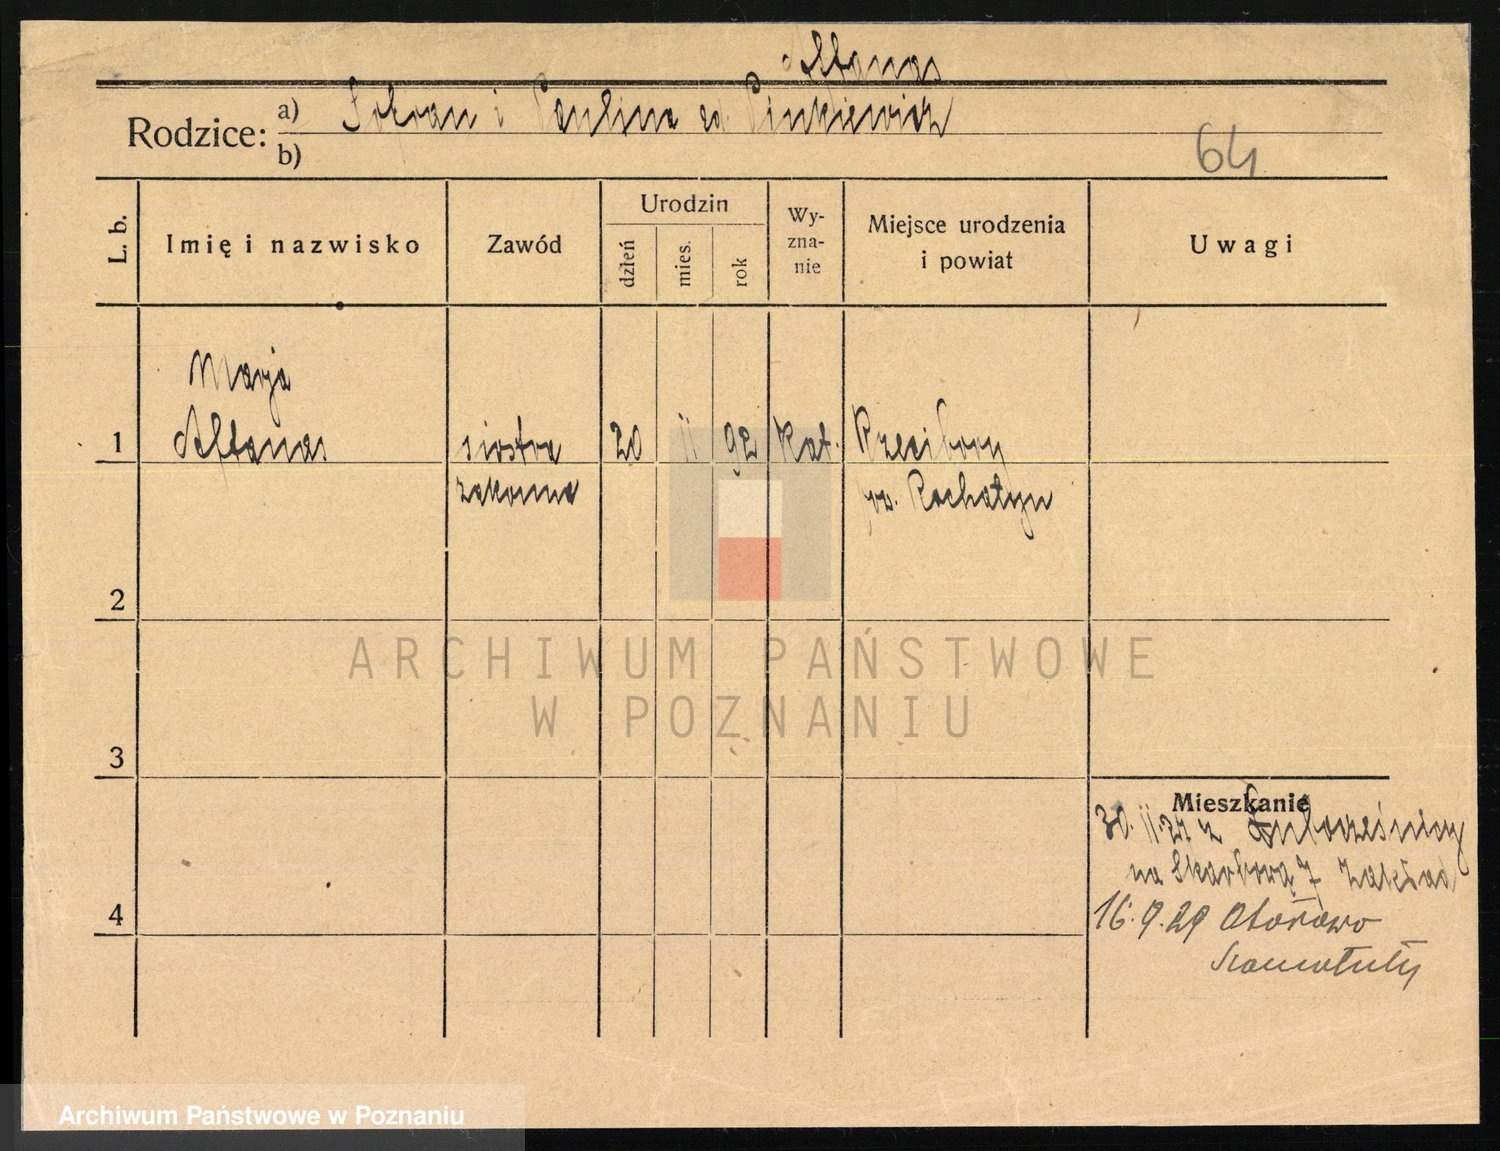 Aftanas
Rodzice: a) i Paulina zd. Pinkiewicz
b)
64
L. b.
Imię i nazwisko
Zawód
Urodzin
dzień
mies.
rok
Wy-
zna-
nie
Miejsce urodzenia
i powiat
Uwagi
Marja
1 Aftanas siostra 20 11 92 kat.
zakonna pow. Rochatyn
2
3
4
Mieszkanie
30. 11. 27 z
na Skarbową 7 Zakład
16. 9. 29 Otorowo
Szamotuły
ARCHIWUM PAŃSTWOWE
W POZNANIU
Archiwum Państwowe w Poznaniu